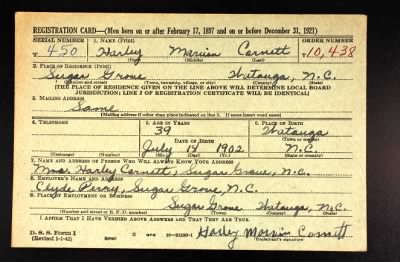 REGISTRATION CARD—(Men born on or after February 17, 1897 and on or before December 31, 1921)
SERIAL NUMBER 1. NAME (Print) ORDER NUMBER
T 450 Harley Marvien Cornett T 10,438
(First) (Middle) (Last)
2. PLACE OF RESIDENCE (Print)
Sugar Grove Watauga, N.C.
(Number and street) (Town, township, village, or city) (County) (State)
[THE PLACE OF RESIDENCE GIVEN ON THE LINE ABOVE WILL DETERMINE LOCAL BOARD
JURISDICTION; LINE 2 OF REGISTRATION CERTIFICATE WILL BE IDENTICAL]
3. MAILING ADDRESS
Same
[Mailing address if other than place indicated on line 2. If same insert word same]
4. TELEPHONE 5. AGE IN YEARS 6. PLACE OF BIRTH
39 Watauga
DATE OF BIRTH (Town or county)
July 18 1902 N.C.
(Exchange) (Number) (Mo.) (Day) (Yr.) (State or country)
7. NAME AND ADDRESS OF PERSON WHO WILL ALWAYS KNOW YOUR ADDRESS
Mrs. Harley Cornett, Sugar Grove, N.C.
8. EMPLOYER'S NAME AND ADDRESS
Clyde Perry, Sugar Grove, N.C.
9. PLACE OF EMPLOYMENT OR BUSINESS
Sugar Grove Watauga, N.C.
(Number and street or R. F. D. number) (Town) (County) (State)
I AFFIRM THAT I HAVE VERIFIED ABOVE ANSWERS AND THAT THEY ARE TRUE.
D. S. S. Form 1
(Revised 1-1-42) (over) 16—21630-1 Harley Marvin Cornett
(Registrant's signature)